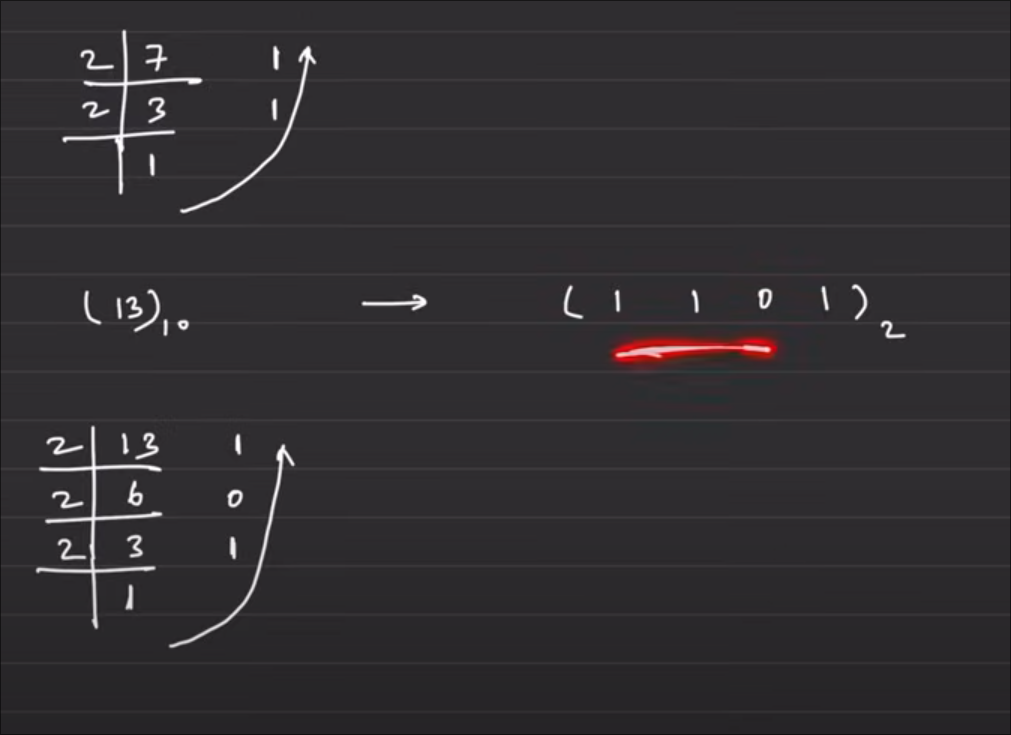 2 7 1
2 3 1
1
(13)₁₀ → (1 1 0 1)₂
2 13 1
2 6 0
2 3 1
1